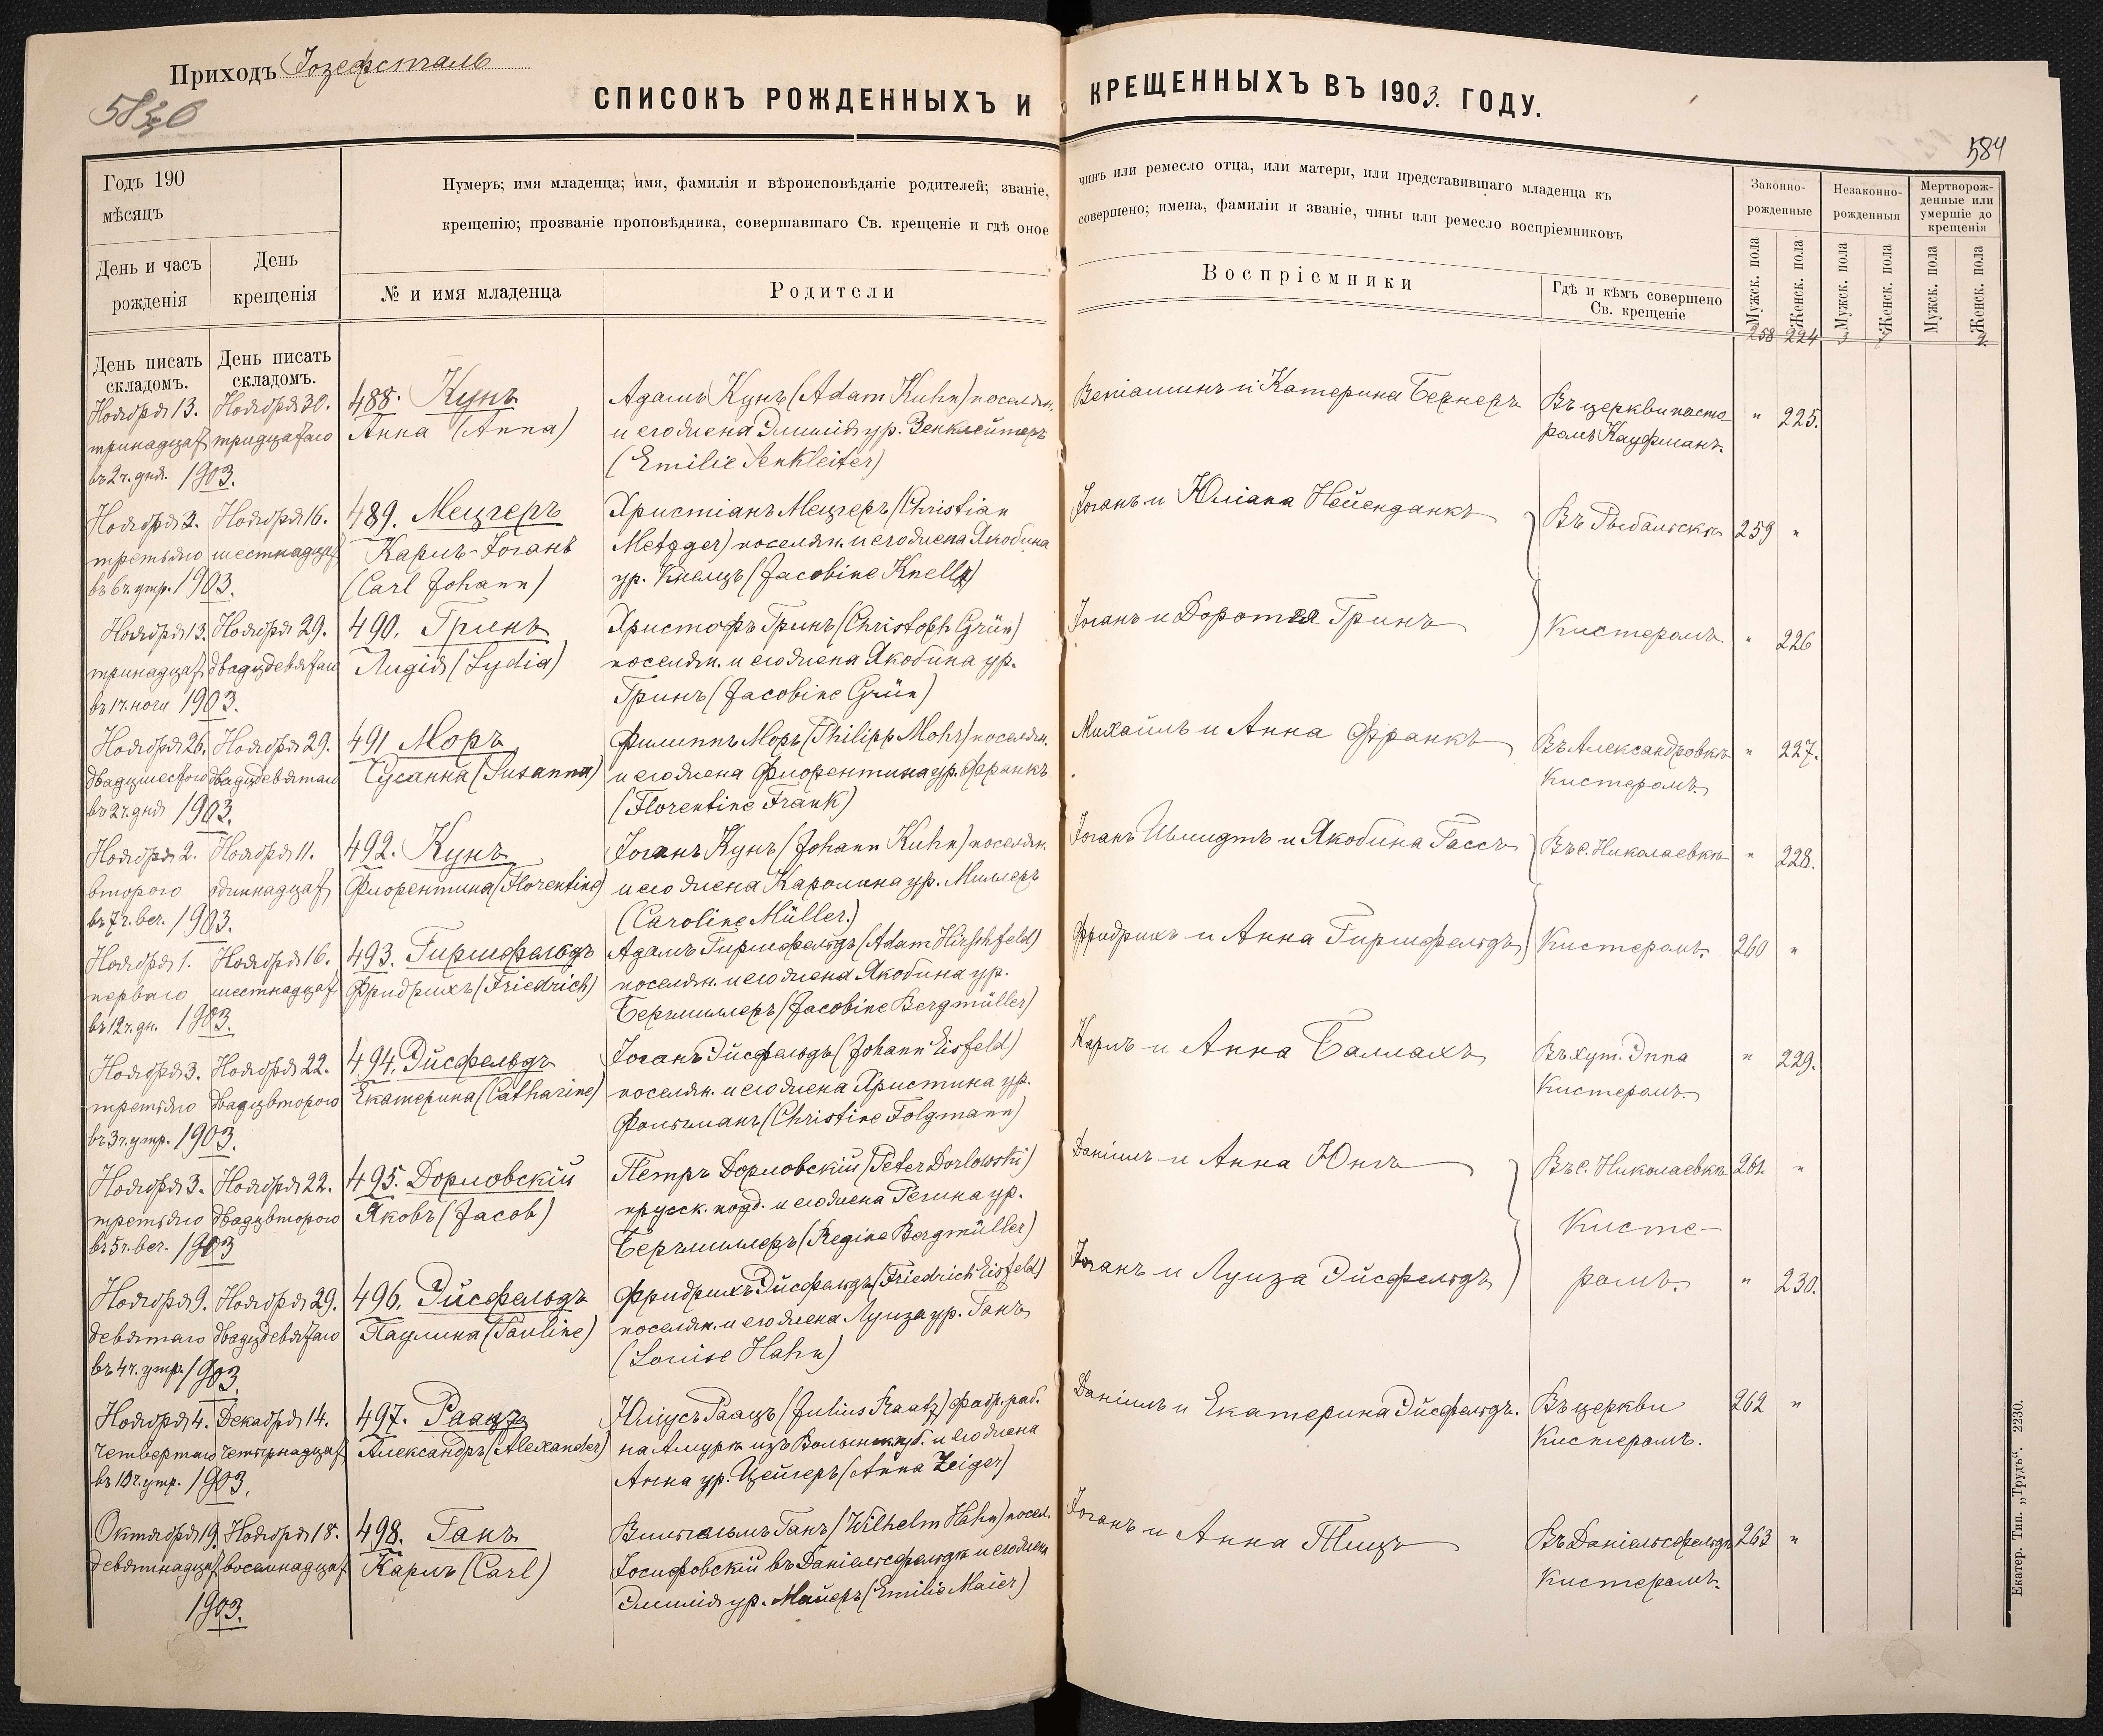 Приходъ Іозефсталь
СПИСОКЪ РОЖДЕННЫХЪ И КРЕЩЕННЫХЪ ВЪ 1903. ГОДУ.
584
Годъ 190
мѣсяцъ
Нумеръ; имя младенца; имя, фамилія и вѣроисповѣданіе родителей; званіе, чинъ или ремесло отца, или матери, или представившаго младенца къ
крещенію; прозваніе проповѣдника, совершавшаго Св. крещеніе и гдѣ оное совершено; имена, фамиліи и званіе, чины или ремесло воспріемниковъ
Законно-
рожденные
Незаконно-
рожденныя
Мертворож-
денные или
умершіе до
крещенія
День и часъ
рожденія
День
крещенія
№ и имя младенца
Родители
Воспріемники
Гдѣ и кѣмъ совершено
Св. крещеніе
Мужск. пола
Женск. пола
Мужск. пола
Женск. пола
Мужск. пола
Женск. пола
258 224 3 7 2.
День писать
складомъ.
День писать
складомъ.
Ноября 13. Ноября 30. 488. Кунъ Адамъ Кунъ (Adam Kuhn) поселян. Веніаминъ и Катерина Бернеръ Въ церкви пасто- " 225.
тринадцат тридцатаго Анна (Anna) и его жена Эмилія ур. Зенклейтеръ ромъ Кауфманъ.
въ 2 ч. дня. 1903. (Emilie Senkleiter)
Ноября 3. Ноября 16. 489. Мецгеръ Христіанъ Мецгеръ (Christian Іоганъ и Юліана Нейенданкъ Въ Рыбальскѣ 259 "
третьяго шестнадцат Карлъ-Іоганъ Metzger) поселян. и его жена Якобина
въ 6 ч. утр. 1903. (Carl Johann) ур. Кнелцъ (Jacobine Knellz)
Ноября 13. Ноября 29. 490. Гринъ Христофъ Гринъ (Christoph Grün) Іоганъ и Доротея Гринъ Кистеромъ " 226
тринадцат. двадцдевятаго Лидія (Lydia) поселян. и его жена Якобина ур.
въ 1 ч. ночи 1903. Гринъ (Jacobine Grün)
Ноября 26. Ноября 29. 491 Моръ Филиппъ Моръ (Philipp Mohr) поселян. Михаилъ и Анна Франкъ Въ Александровкѣ " 227.
двадцшестого двадцдевятаго Сусанна (Susanna) и его жена Флорентина ур. Франкъ Кистеромъ.
въ 2 ч. дня 1903. (Florentine Frank)
Ноября 2. Ноября 11. 492. Кунъ Іоганъ Кунъ (Johann Kuhn) поселян. Іоганъ Шмидтъ и Якобина Гассъ Въ с. Николаевкѣ " 228.
второго одиннадцат Флорентина (Florentine) и его жена Каролина ур. Миллеръ
въ 7 ч. веч. 1903. (Caroline Müller.)
Ноября 1. Ноября 16. 493. Гиршфельдъ Адамъ Гиршфельдъ (Adam Hirschfeld) Фридрихъ и Анна Гиршфельдъ Кистеромъ. 260 "
перваго шестнадцат. Фридрихъ (Friedrich) поселян. и его жена Якобина ур.
въ 12 ч. дн. 1903. Бергмиллеръ (Jacobine Bergmüller)
Ноября 3. Ноября 22. 494. Эйсфельдъ Іоганъ Эйсфельдъ (Johann Eisfeld) Карлъ и Анна Баллахъ Въ хут. Эппа " 229.
третьяго двадцвторого Екатерина (Catharine) поселян. и его жена Христина ур. Кистеромъ.
въ 3 ч. утр. 1903. Фольгманъ (Christine Folgmann)
Ноября 3. Ноября 22. 495. Дорловскій Петръ Дорловскій (Peter Dorlowski) Даніилъ и Анна Юнгъ Въ с. Николаевкѣ 261. "
третьяго двадцвторого Яковъ (Jacob) прусск. подд. и его жена Регина ур. Кисте-
въ 5 ч. веч. 1903 Бергмиллеръ (Regine Bergmüller)
Ноября 9. Ноября 29. 496. Эйсфельдъ Фридрихъ Эйсфельдъ (Friedrich Eisfeld) Іоганъ и Луиза Эйсфельдъ ромъ. " 230.
девятаго двадцдевятаго Паулина (Pauline) поселян. и его жена Луиза ур. Ганъ
въ 4 ч. утр. 1903 (Louise Hahn)
Ноября 4. Декабря 14. 497. Раацъ Юліусъ Раацъ (Julius Raatz) фабр. раб. Даніилъ и Екатерина Эйсфельдъ. Въ церкви 262 "
четвертаго четырнадцат Александръ (Alexander) на Амурѣ изъ Волынск. губ. и его жена Кистеромъ.
въ 10 ч. утр. 1903. Анна ур. Цейгеръ (Anna Zeiger)
Октября 19. Ноября 18. 498. Ганъ Вильгельмъ Ганъ (Wilhelm Hahn) посел. Іоганъ и Анна Тицъ Въ Даніельсфельдѣ 263 "
девятнадцат. восемнадцат Карлъ (Carl) Іосифовскій въ Даніельсфельдѣ и его жена Кистеромъ.
1903. Эмилія ур. Майеръ (Emilie Maier)
Екатер. Тип. „Трудъ“. 2230.